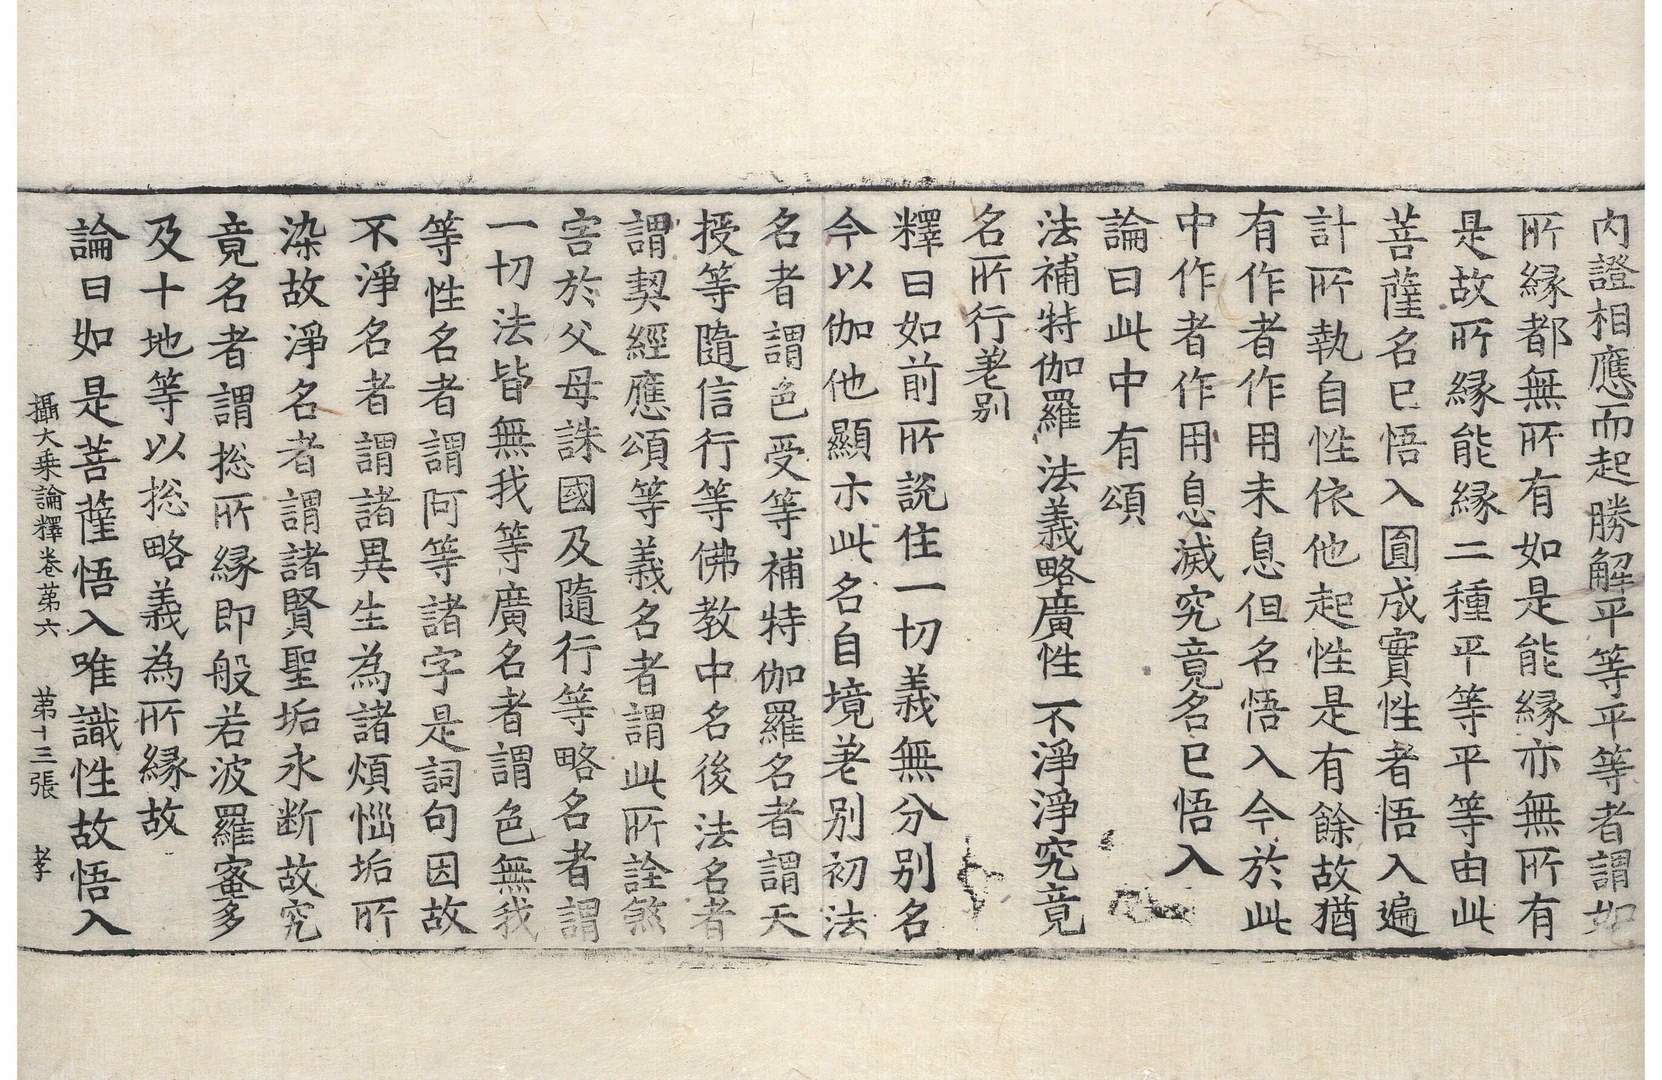 內證相應而起勝解平等平等者謂如
所縁都無所有如是能縁亦無所有
是故所縁能縁二種平等平等由此
菩薩名已悟入圓成實性者悟入遍
計所執自性依他起性是有餘故猶
有作者作用未息但名悟入今於此
中作者作用息滅究竟名已悟入
論曰此中有頌
法補特伽羅 法義略廣性 不淨淨究竟
名所行差别
釋曰如前所説住一切義無分别名
今以伽他顯示此名自境差别初法
名者謂色受等補特伽羅名者謂天
授等隨信行等佛教中名後法名者
謂契經應頌等義名者謂此所詮煞
害於父母誅國及隨行等略名者謂
一切法皆無我等廣名者謂色無我
等性名者謂阿等諸字是詞句因故
不淨名者謂諸異生為諸煩惱垢所
染故淨名者謂諸賢聖垢永断故究
竟名者謂捴所縁即般若波羅蜜多
及十地等以捴略義為所縁故
攝大乘論釋卷苐六 苐十三張 孝
論曰如是菩薩悟入唯識性故悟入